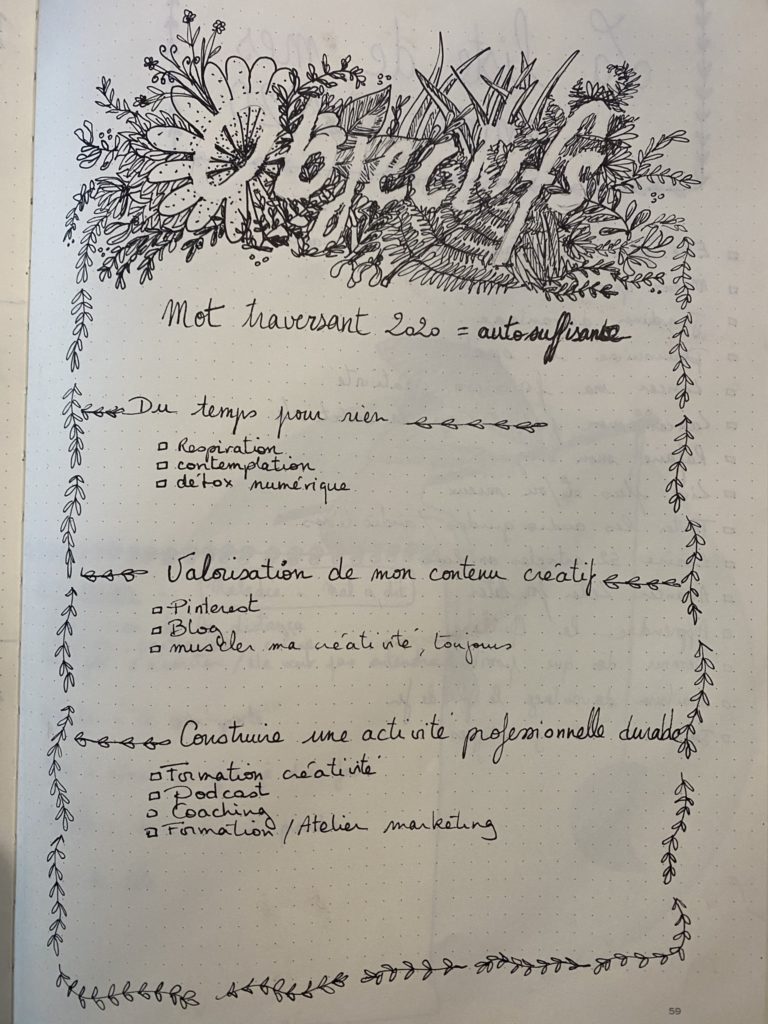 Objectifs
Mot traversant 2020 = autosuffisante
Du temps pour rien
Respiration
contemplation
détox numérique
Valorisation de mon contenu créatif
Pinterest
Blog
muscler ma créativité, toujours
Construire une activité professionnelle durable
Formation créativité
Podcast
Coaching
Formation / Atelier marketing
59